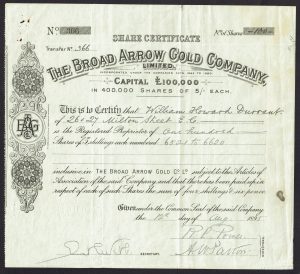 SHARE CERTIFICATE
No 366
No of Shares 100
Transfer No 366
THE BROAD ARROW GOLD COMPANY,
LIMITED.
INCORPORATED UNDER THE COMPANIES ACTS, 1862 TO 1890.
CAPITAL £100,000
IN 400,000 SHARES OF 5/- EACH.
This is to Certify that William Howard Durrant
of 26 & 27 Milton Street E.C.
is the Registered Proprietor of One hundred
Shares of 5 shillings each numbered 6501 to 6600
inclusive in THE BROAD ARROW GOLD Co Ld subject to the Articles of
Association of the said Company and that there has been paid up on
respect of each of such Shares the sum of four shillings & six pence
Given under the Common Seal of the said Company
the day of Aug 1895
SECRETARY.